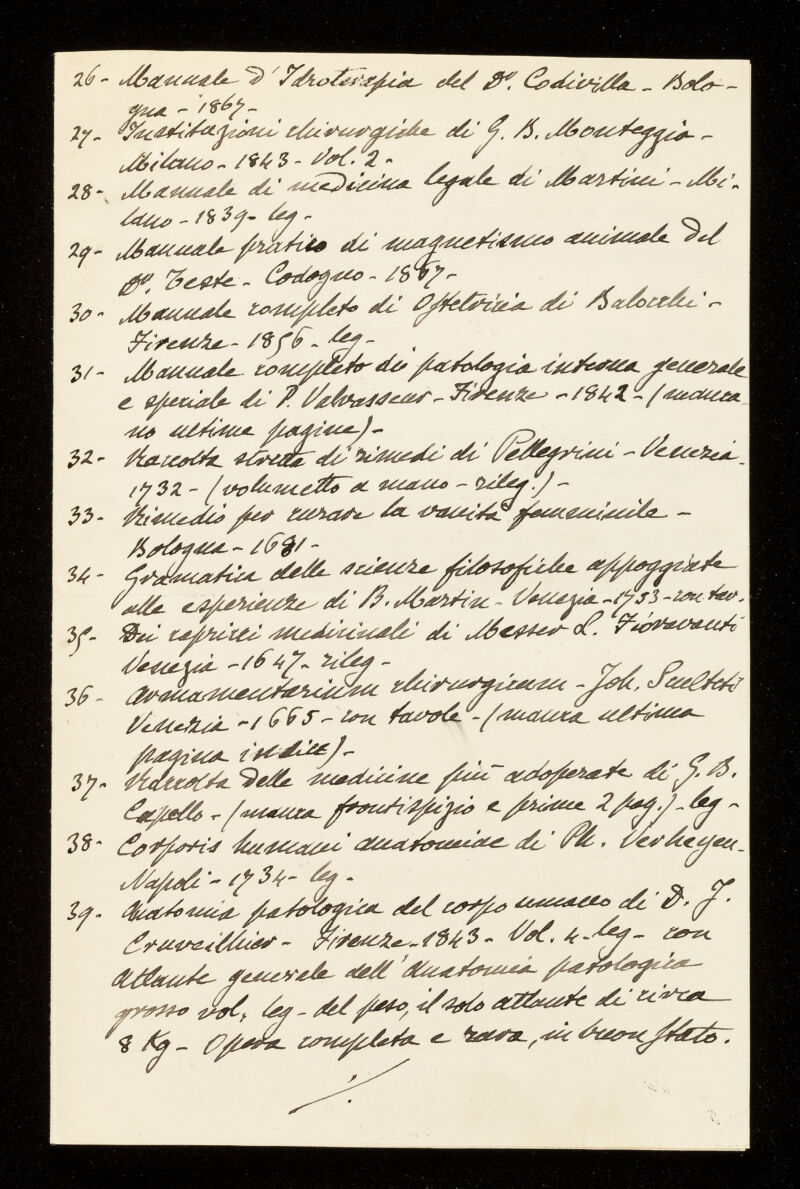 26- Manuale d'Idroterapia del Dr. Codivilla - Bolo-
gna - 1867-
27- Instituzioni chirurgiche di G. B. Monteggia -
Milano - 1843 - Vol. 2 -
28- Manuale di medicina legale di Martini - Mi-
lano - 1839 - leg -
29- Manuale pratico di magnetismo animale del
Dr. Teste - Codogno - 1867 -
30- Manuale completo di Ostetricia di Balocchi -
Firenze - 1856 - leg -
31- Manuale completo di patologia interna generale
e speciale di P. Valvasseur - Firenze - 1842 - (manca
no ultime pagine) -
32- Raccolta stretta di rimedi di Pellegrini - Venezia -
1732 - (volumetto a mano - rileg.) -
33- Rimedio per curare la vanità femminile -
Bologna - 1681 -
34- Gramatica delle scienze filosofiche appoggiate
alle esperienze di B. Martin - Venezia - 1753 - con tav.
35- Dei capricci medicinali di Messer L. Fioravanti
Venezia - 1647 - rileg -
36- Armamentarium chirurgicum - Joh. Sculteti
Venezia - 1665 - con tavole - (manca ultima
pagina indice) -
37- Raccolta delle medicine più adoperate di G. B.
Capello - (manca frontispizio e prime 2 pag.) - leg -
38- Corporis humani anatomiae di Ph. Verheyen -
Napoli - 1734 - leg -
39- Anatomia patologica del corpo umano di D. J.
Cruveilhier - Firenze - 1843 - Vol. 4 - leg - con
Atlante generale dell'Anatomia patologica
grosso vol. leg - del peso, il solo atlante di circa
8 Kg - Opera completa e rara, in buon stato.
./.